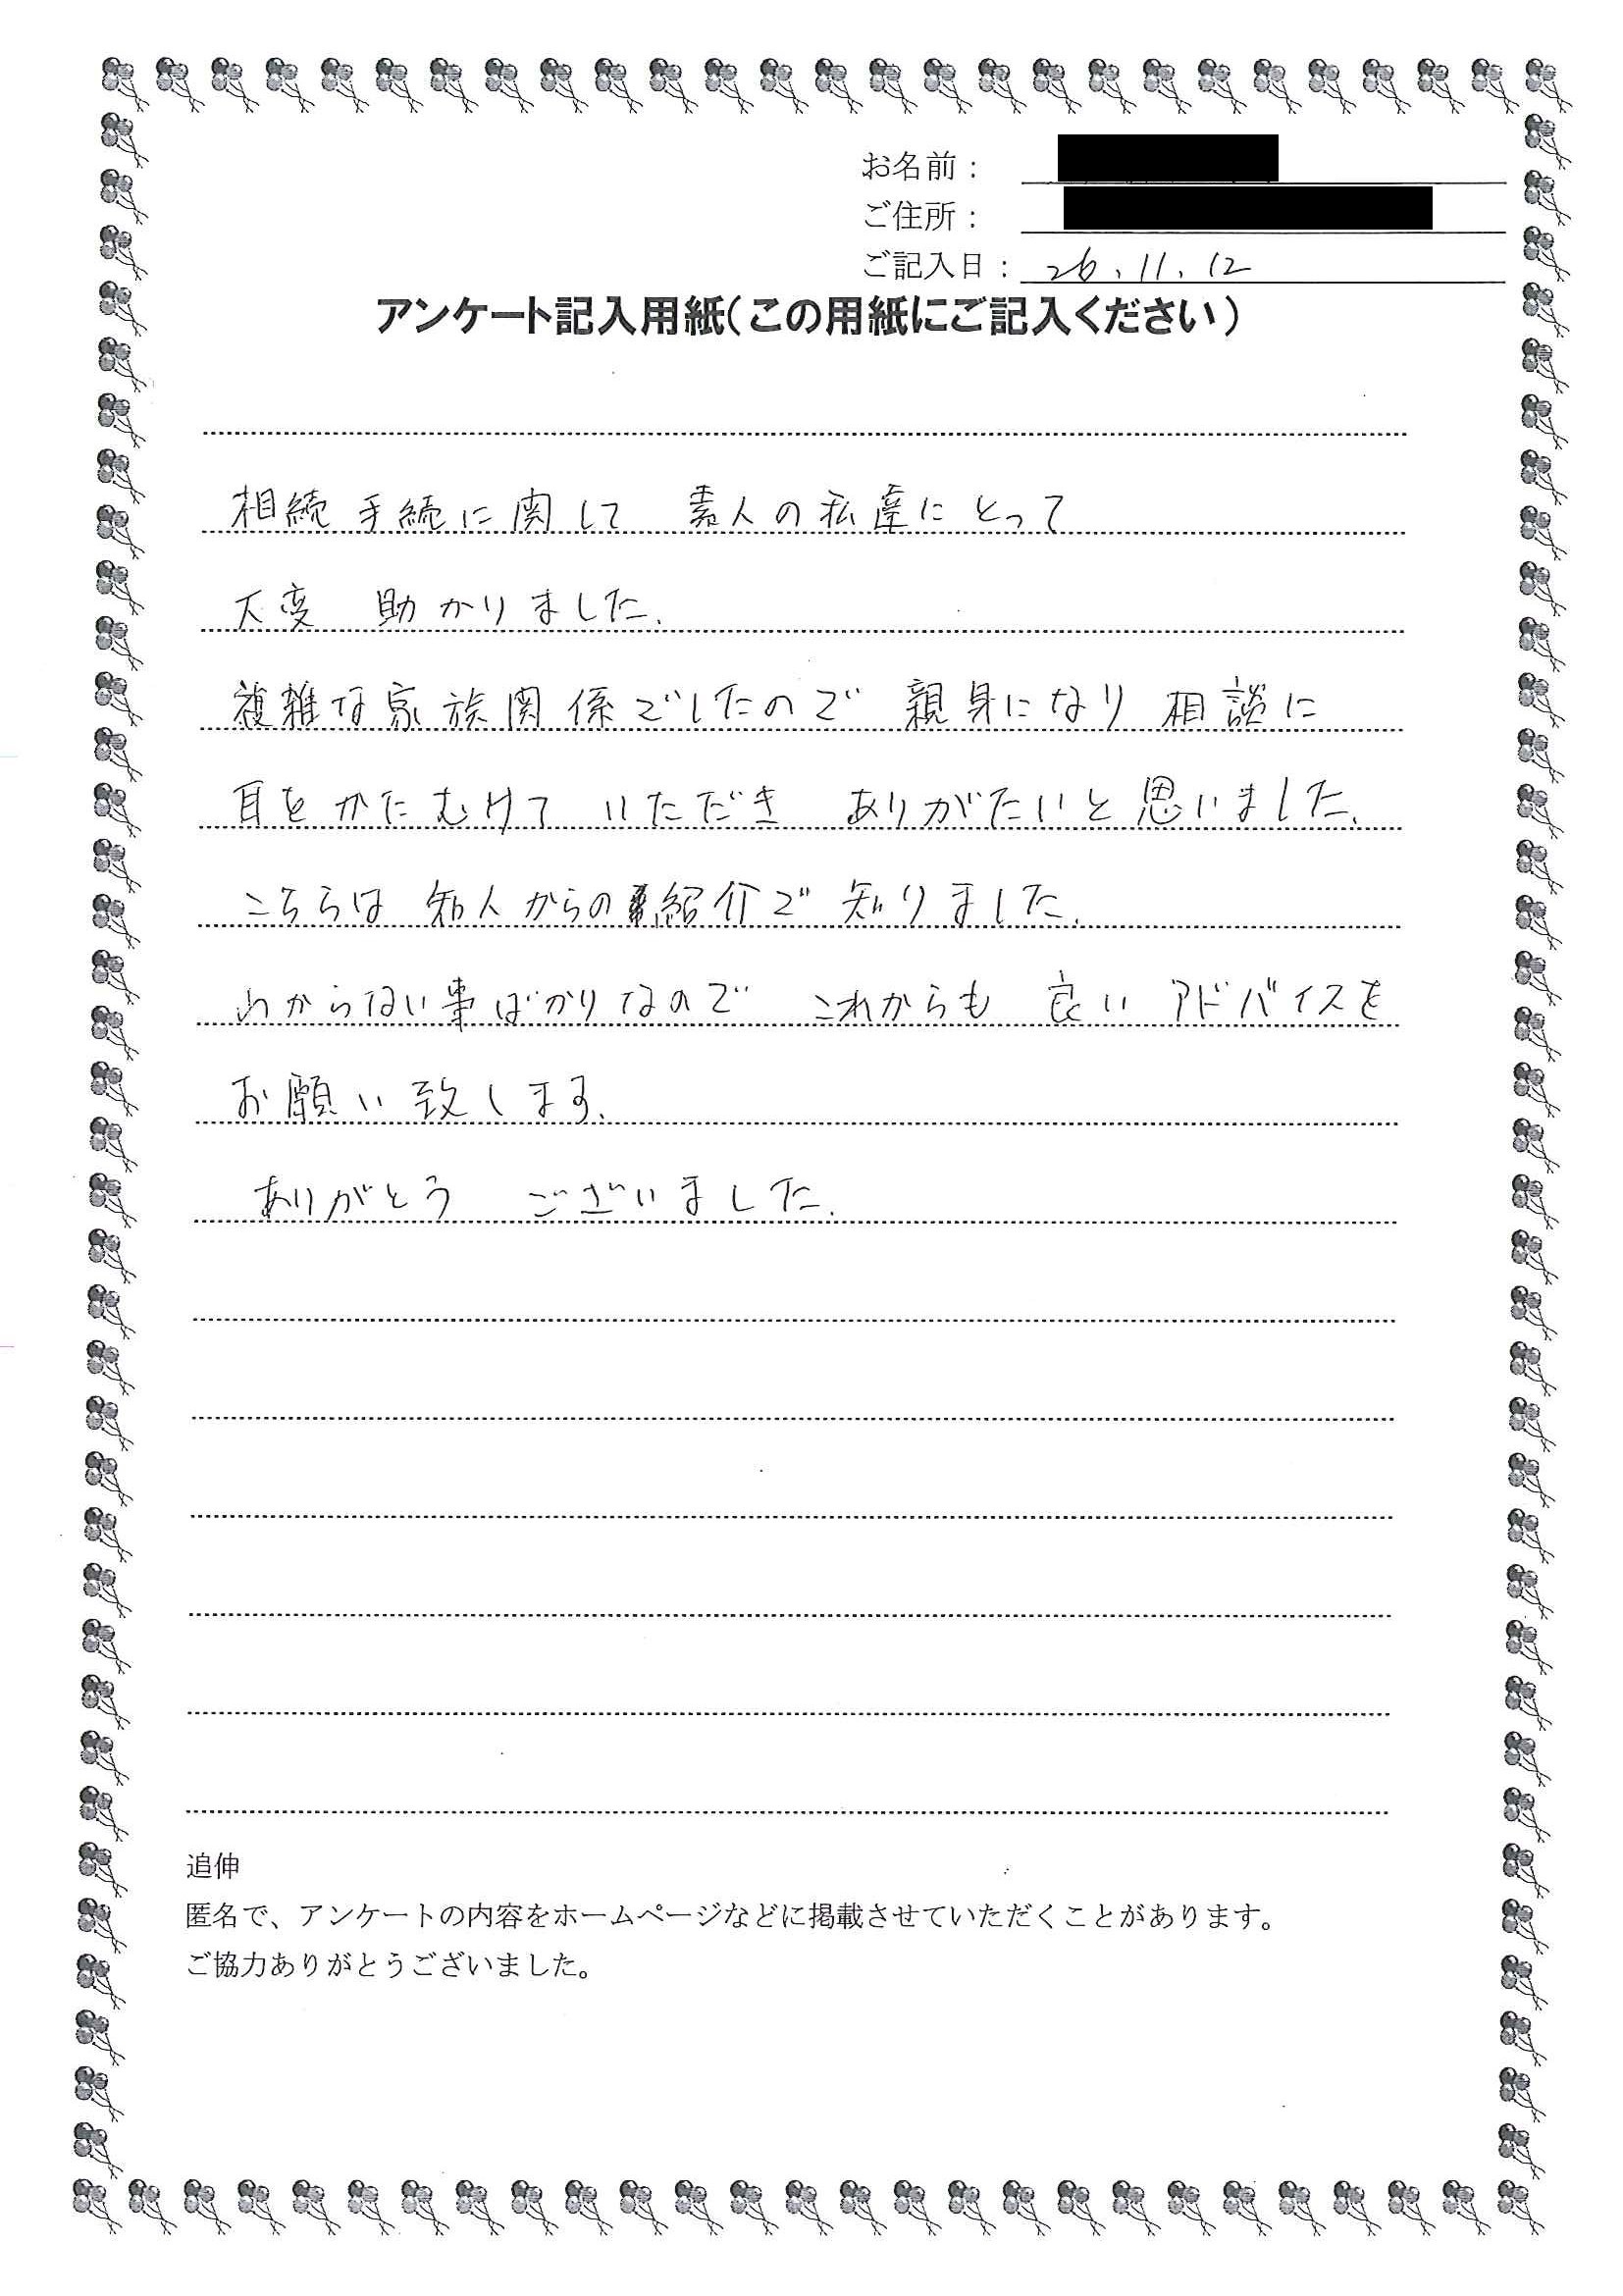 お名前：
ご住所：
ご記入日：26.11.12
アンケート記入用紙（この用紙にご記入ください）
相続手続に関して 素人の私達にとって
大変 助かりました.
複雑な家族関係でしたので 親身になり 相談に
耳をかたむけて いただき ありがたいと思いました.
こちらは 知人からの紹介で 知りました.
わからない事ばかりなので これからも 良い アドバイスを
お願い致します.
ありがとう ございました.
追伸
匿名で、アンケートの内容をホームページなどに掲載させていただくことがあります。
ご協力ありがとうございました。